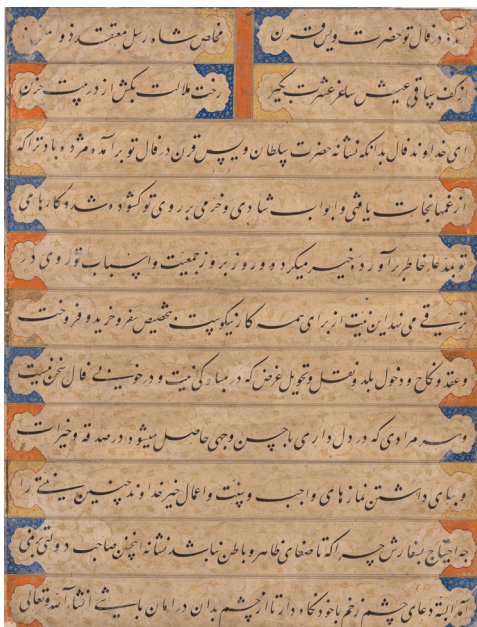 آمده در فال تو حضرت ویس قرن
مخلص شاه رسل معتقد ذو المنن
از کف ساقی عیش ساغر عشرت بگیر
رخت ملالت بکش از در بیت حزن
ای خداوند فال بدانکه نشانه حضرت سلطان ویس قرن در فال تو برآمده مژده باد ترا که
از غمها نجات یافتی و ابواب شادی و خرمی بر روی تو کشوده شد و کارهای
تو بمدعا خاطر برآورده خیر میکردد و روز بروز جمعیت و اسباب تو روی در
ترقی می نهد این نیت از برای همه کار نیکوست بتخصیص سفر و خرید و فروخت
و عقد و نکاح و دخول بلد و نقل و تحویل غرض که در مبارکی نیت و در خوبی فال سخن نیست
و هر مرادی که در دل داری باحسن وجهی حاصل میشود در صدقه و خیرات
و بپای داشتن نمازهای واجب و سنت و اعمال خیر خداوند چنین نیتی را
چه احتیاج بسفارش چرا که تا صفای ظاهر و باطن نباشد نشانه اینچنین صاحب دولتی بر نمی
آید البته دعای چشم زخم با خود نگاه دار تا از چشم بدان در امان باشی انشاء الله تعالی